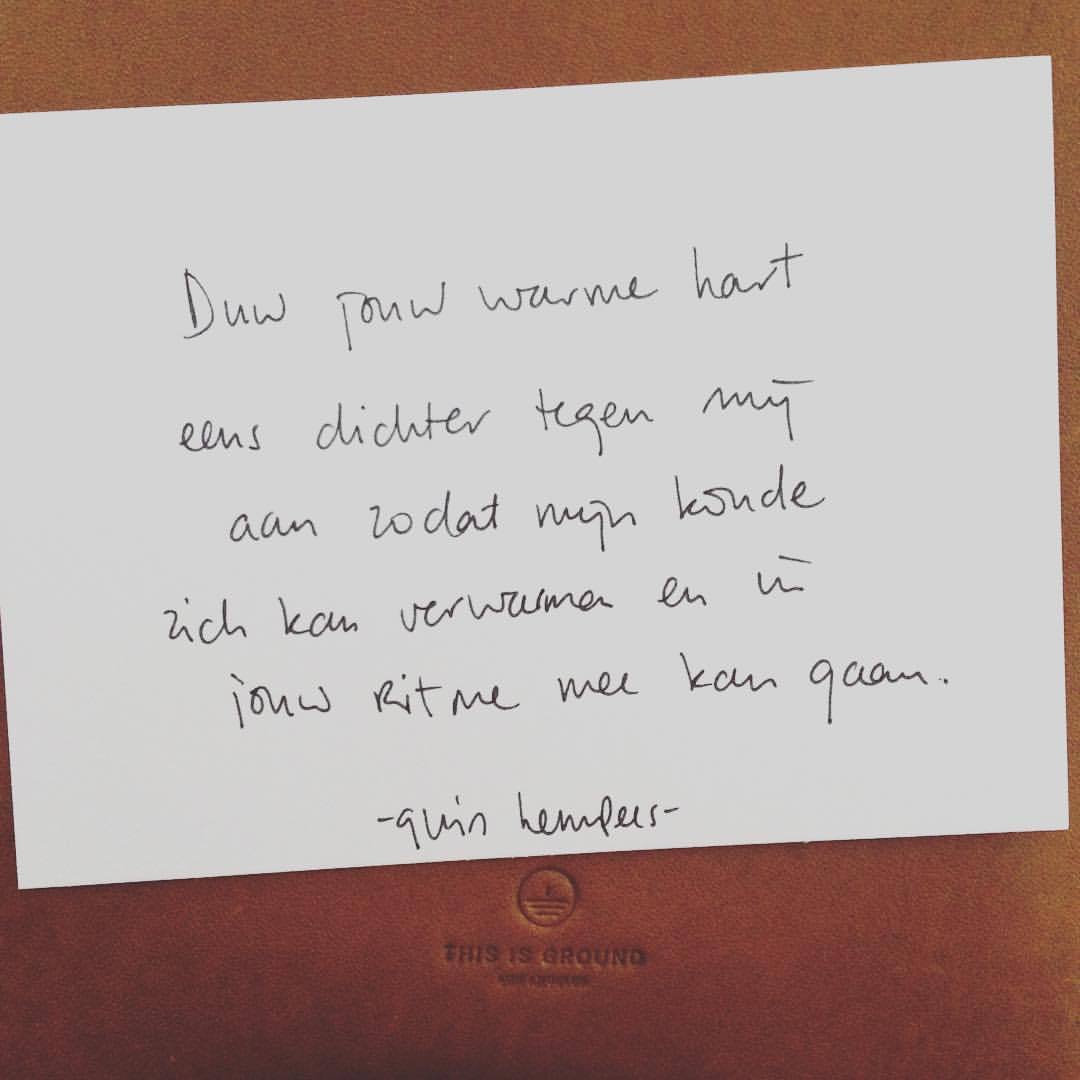 Duw jouw warme hart
eens dichter tegen mij
aan zodat mijn koude
zich kan verwarmen en in
jouw Ritme mee kan gaan.
-quin hempers-
THIS IS GROUND